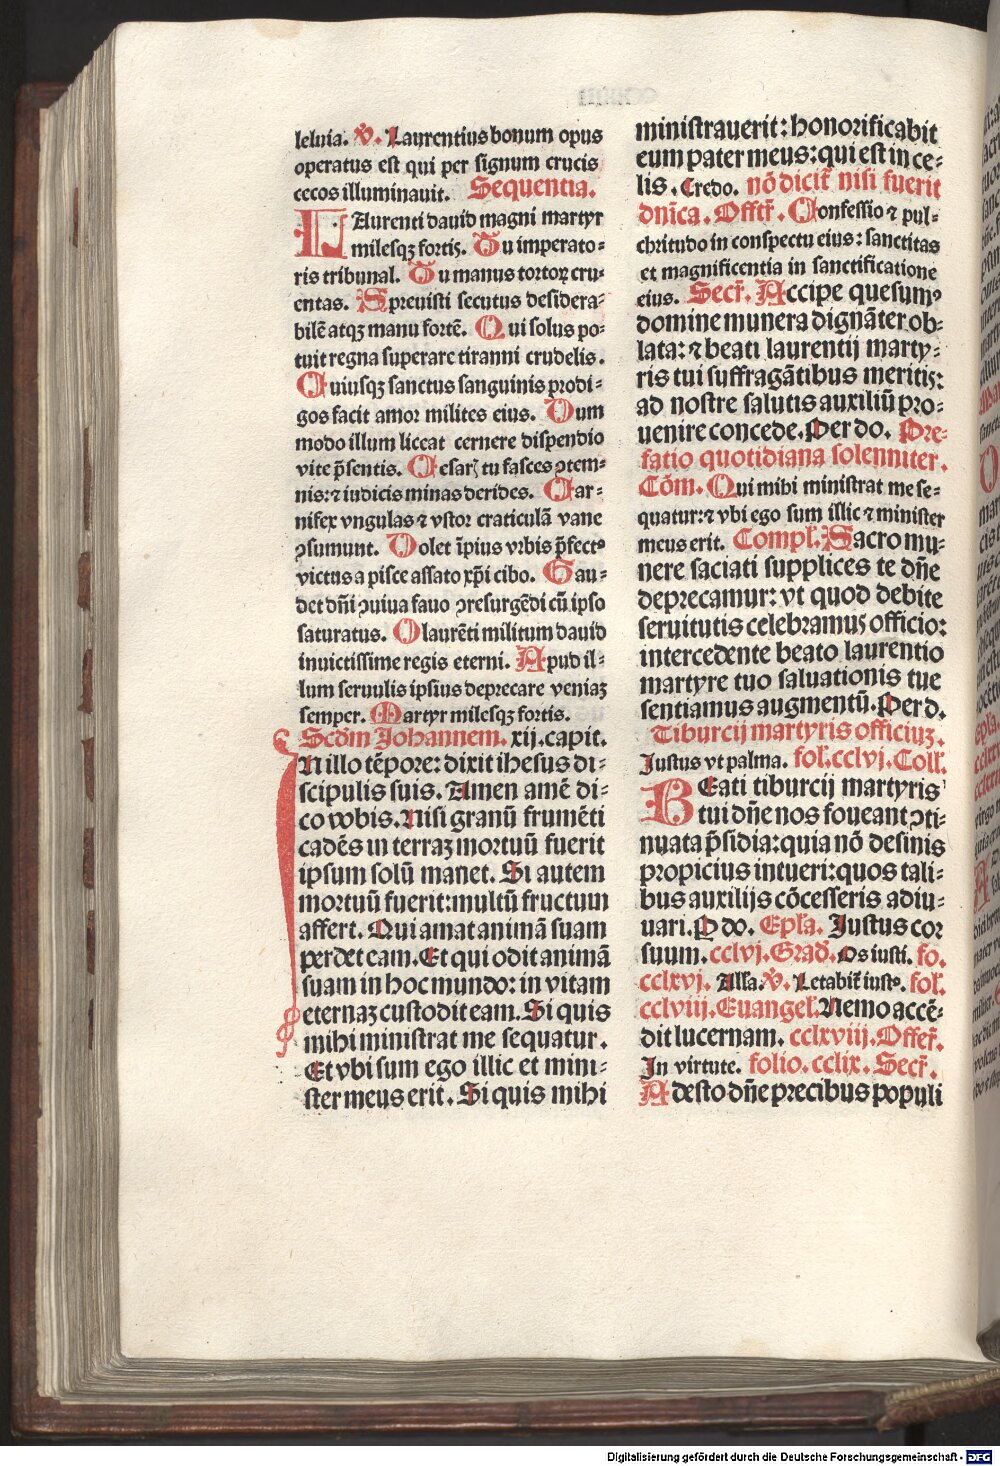 leluia. v̇. Laurentius bonum opus
operatus est qui per signum crucis
cecos illuminauit. Sequentia.
LAurenti dauid magni martyr
milesqꝫ fortis. Tu imperato⸗
ris tribunal. Tu manus tortoꝝ cru⸗
entas. Spreuisti secutus desidera⸗
bilē atqꝫ manu fortē. Qui solus po⸗
tuit regna superare tiranni crudelis.
Cuiusqꝫ sanctus sanguinis prodi⸗
gos facit amor milites eius. Dum
modo illum liceat cernere dispendio
vite p̄sentis. Cesarꝭ tu fasces ꝯtem⸗
nis: ⁊ iudicis minas derides. Car⸗
nifex vngulas ⁊ vstor craticulā vane
ꝯsumunt. Dolet īpius vrbis p̄fectꝰ
victus a pisce assato xp̄i cibo. Gau⸗
det dn̄i ꝯuiua fauo ꝯresurgēdi cū ipso
saturatus. O laurēti militum dauid
inuictissime regis eterni. Apud il⸗
lum seruulis ipsius deprecare veniaꝫ
semper. Martyr milesqꝫ fortis.
Scd̄m Johannem. xij. capit.
IN illo tēpore: dixit ihesus di⸗
scipulis suis. Amen amē di⸗
co vobis. Nisi granū frumēti
cadēs in terraꝫ mortuū fuerit
ipsum solū manet. Si autem
mortuū fuerit: multū fructum
affert. Qui amat animā suam
perdet eam. Et qui odit animā
suam in hoc mundo: in vitam
eternaꝫ custodit eam. Si quis
mihi ministrat me sequatur.
Et vbi sum ego illic et mini⸗
ster meus erit. Si quis mihi
ministrauerit: honorificabit
eum pater meus: qui est in ce⸗
lis. Credo. nō dicit̄ nisi fuerit
dn̄ica. Offtr̄. Confessio ⁊ pul⸗
chritudo in conspectu eius: sanctitas
et magnificentia in sanctificatione
eius. Secr̄. Accipe quesumꝰ
domine munera dignāter ob⸗
lata: ⁊ beati laurentij marty⸗
ris tui suffragātibus meritis:
ad nostre salutis auxiliū pro⸗
uenire concede. Per do. Pre⸗
fatio quotidiana solenniter.
Cōm. Qui mihi ministrat me se⸗
quatur: ⁊ vbi ego sum illic ⁊ minister
meus erit. Compl̄. Sacro mu⸗
nere saciati supplices te dn̄e
deprecamur: vt quod debite
seruitutis celebramus officio:
intercedente beato laurentio
martyre tuo saluationis tue
sentiamus augmentū. Per d.
Tiburcij martyris officiuꝫ.
Justus vt palma. fol. cclvj. Coll̄.
BEati tiburcij martyris
tui dn̄e nos foueant ꝯti⸗
nuata p̄sidia: quia nō desinis
propicius intueri: quos tali⸗
bus auxilijs cōcesseris adiu⸗
uari. P̱ do. Epl̄a. Justus cor
suum. cclvj. Grad̄. Os iusti. fo.
cclxvj. All̄a. v̇. Letabit̄ iustꝰ. fol̄.
cclviij. Euangel̄. Nemo accē⸗
dit lucernam. cclxviij. Offer̄.
In virtute. folio. cclix. Secr̄.
Adesto dn̄e precibus populi
Digitalisierung gefördert durch die Deutsche Forschungsgemeinschaft - DFG